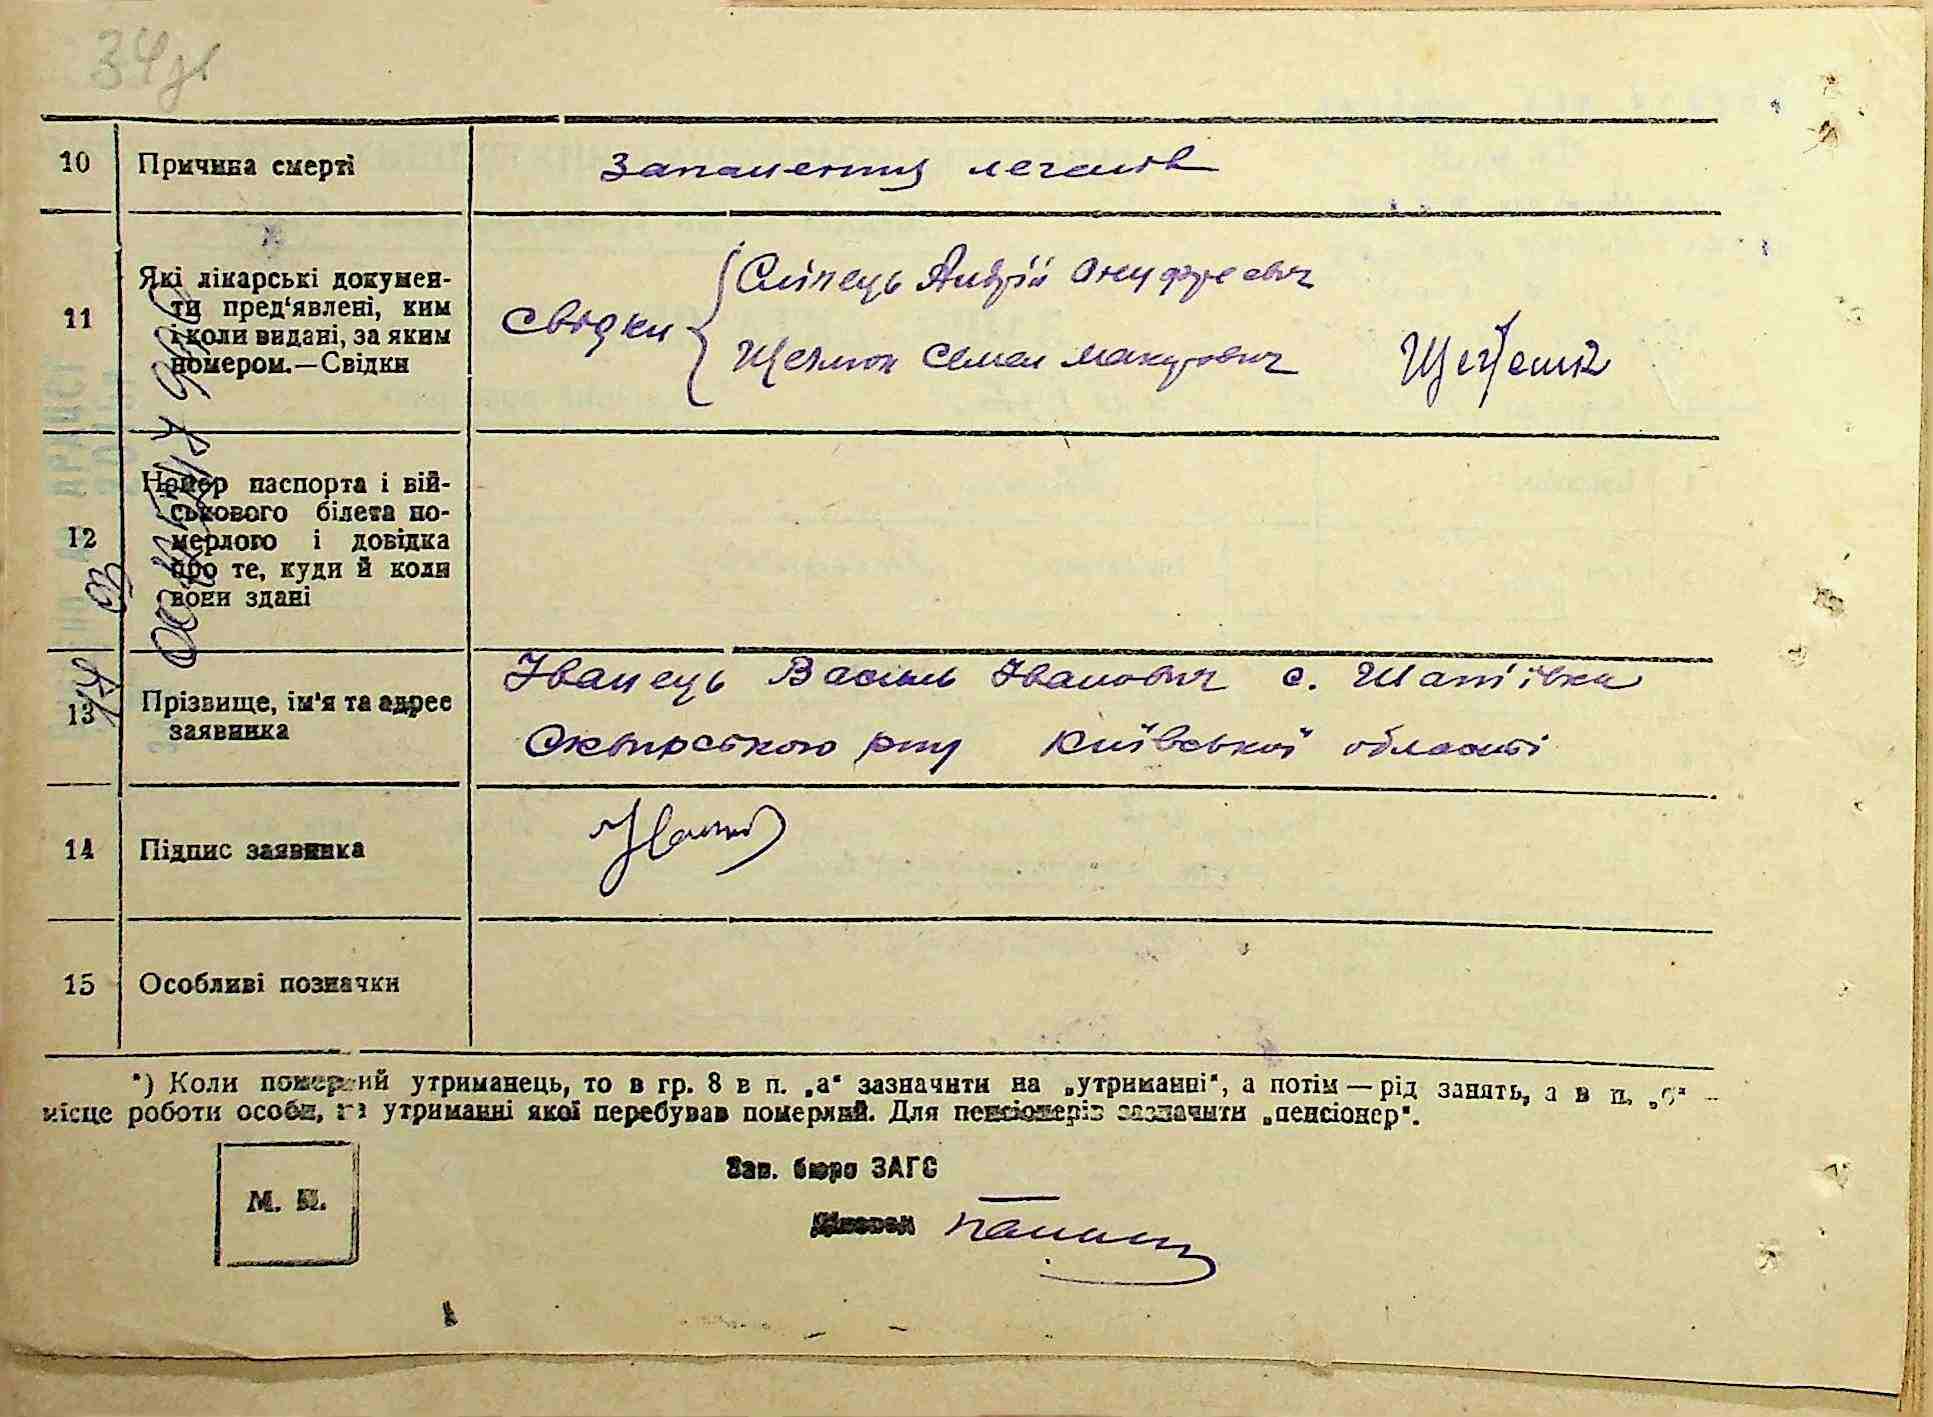 10 Причина смерті Запалення легенів
11 Які лікарські докумен-
ти пред'явлені, ким
і коли видані, за яким
номером.—Свідки
свідки Сліпець Андрій Онуфреєвич
Семен Макарович
12 Номер паспорта і вій-
ськового білета по-
мерлого і довідка
про те, куди й коли
вони здані
13 Прізвище, ім'я та адрес
заявника
Іванець Василь Іванович с. Шапіївка
Сквирського р-ну Київської області
14 Підпис заявника
15 Особливі позначки
*) Коли померлий утриманець, то в гр. 8 в п. „а" зазначити на „утриманні", а потім — рід занять, а в п. „б" —
місце роботи особи, на утриманні якої перебував померлий. Для пенсіонерів зазначити „пенсіонер".
Зав. бюро ЗАГС
М. П.
Діловод